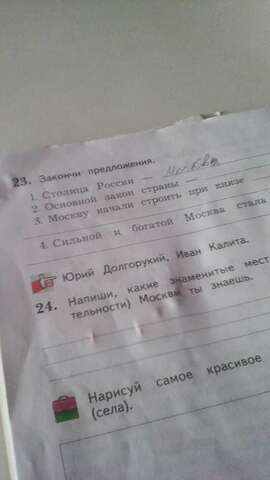 23. Закончи предложения.
1. Столица России — Москва
2. Основной закон страны —
3. Москву начали строить при князе
4. Сильной и богатой Москва стала
Юрий Долгорукий, Иван Калита.
24. Напиши, какие знаменитые мест
тельности) Москвы ты знаешь.
Нарисуй самое красивое
(села).